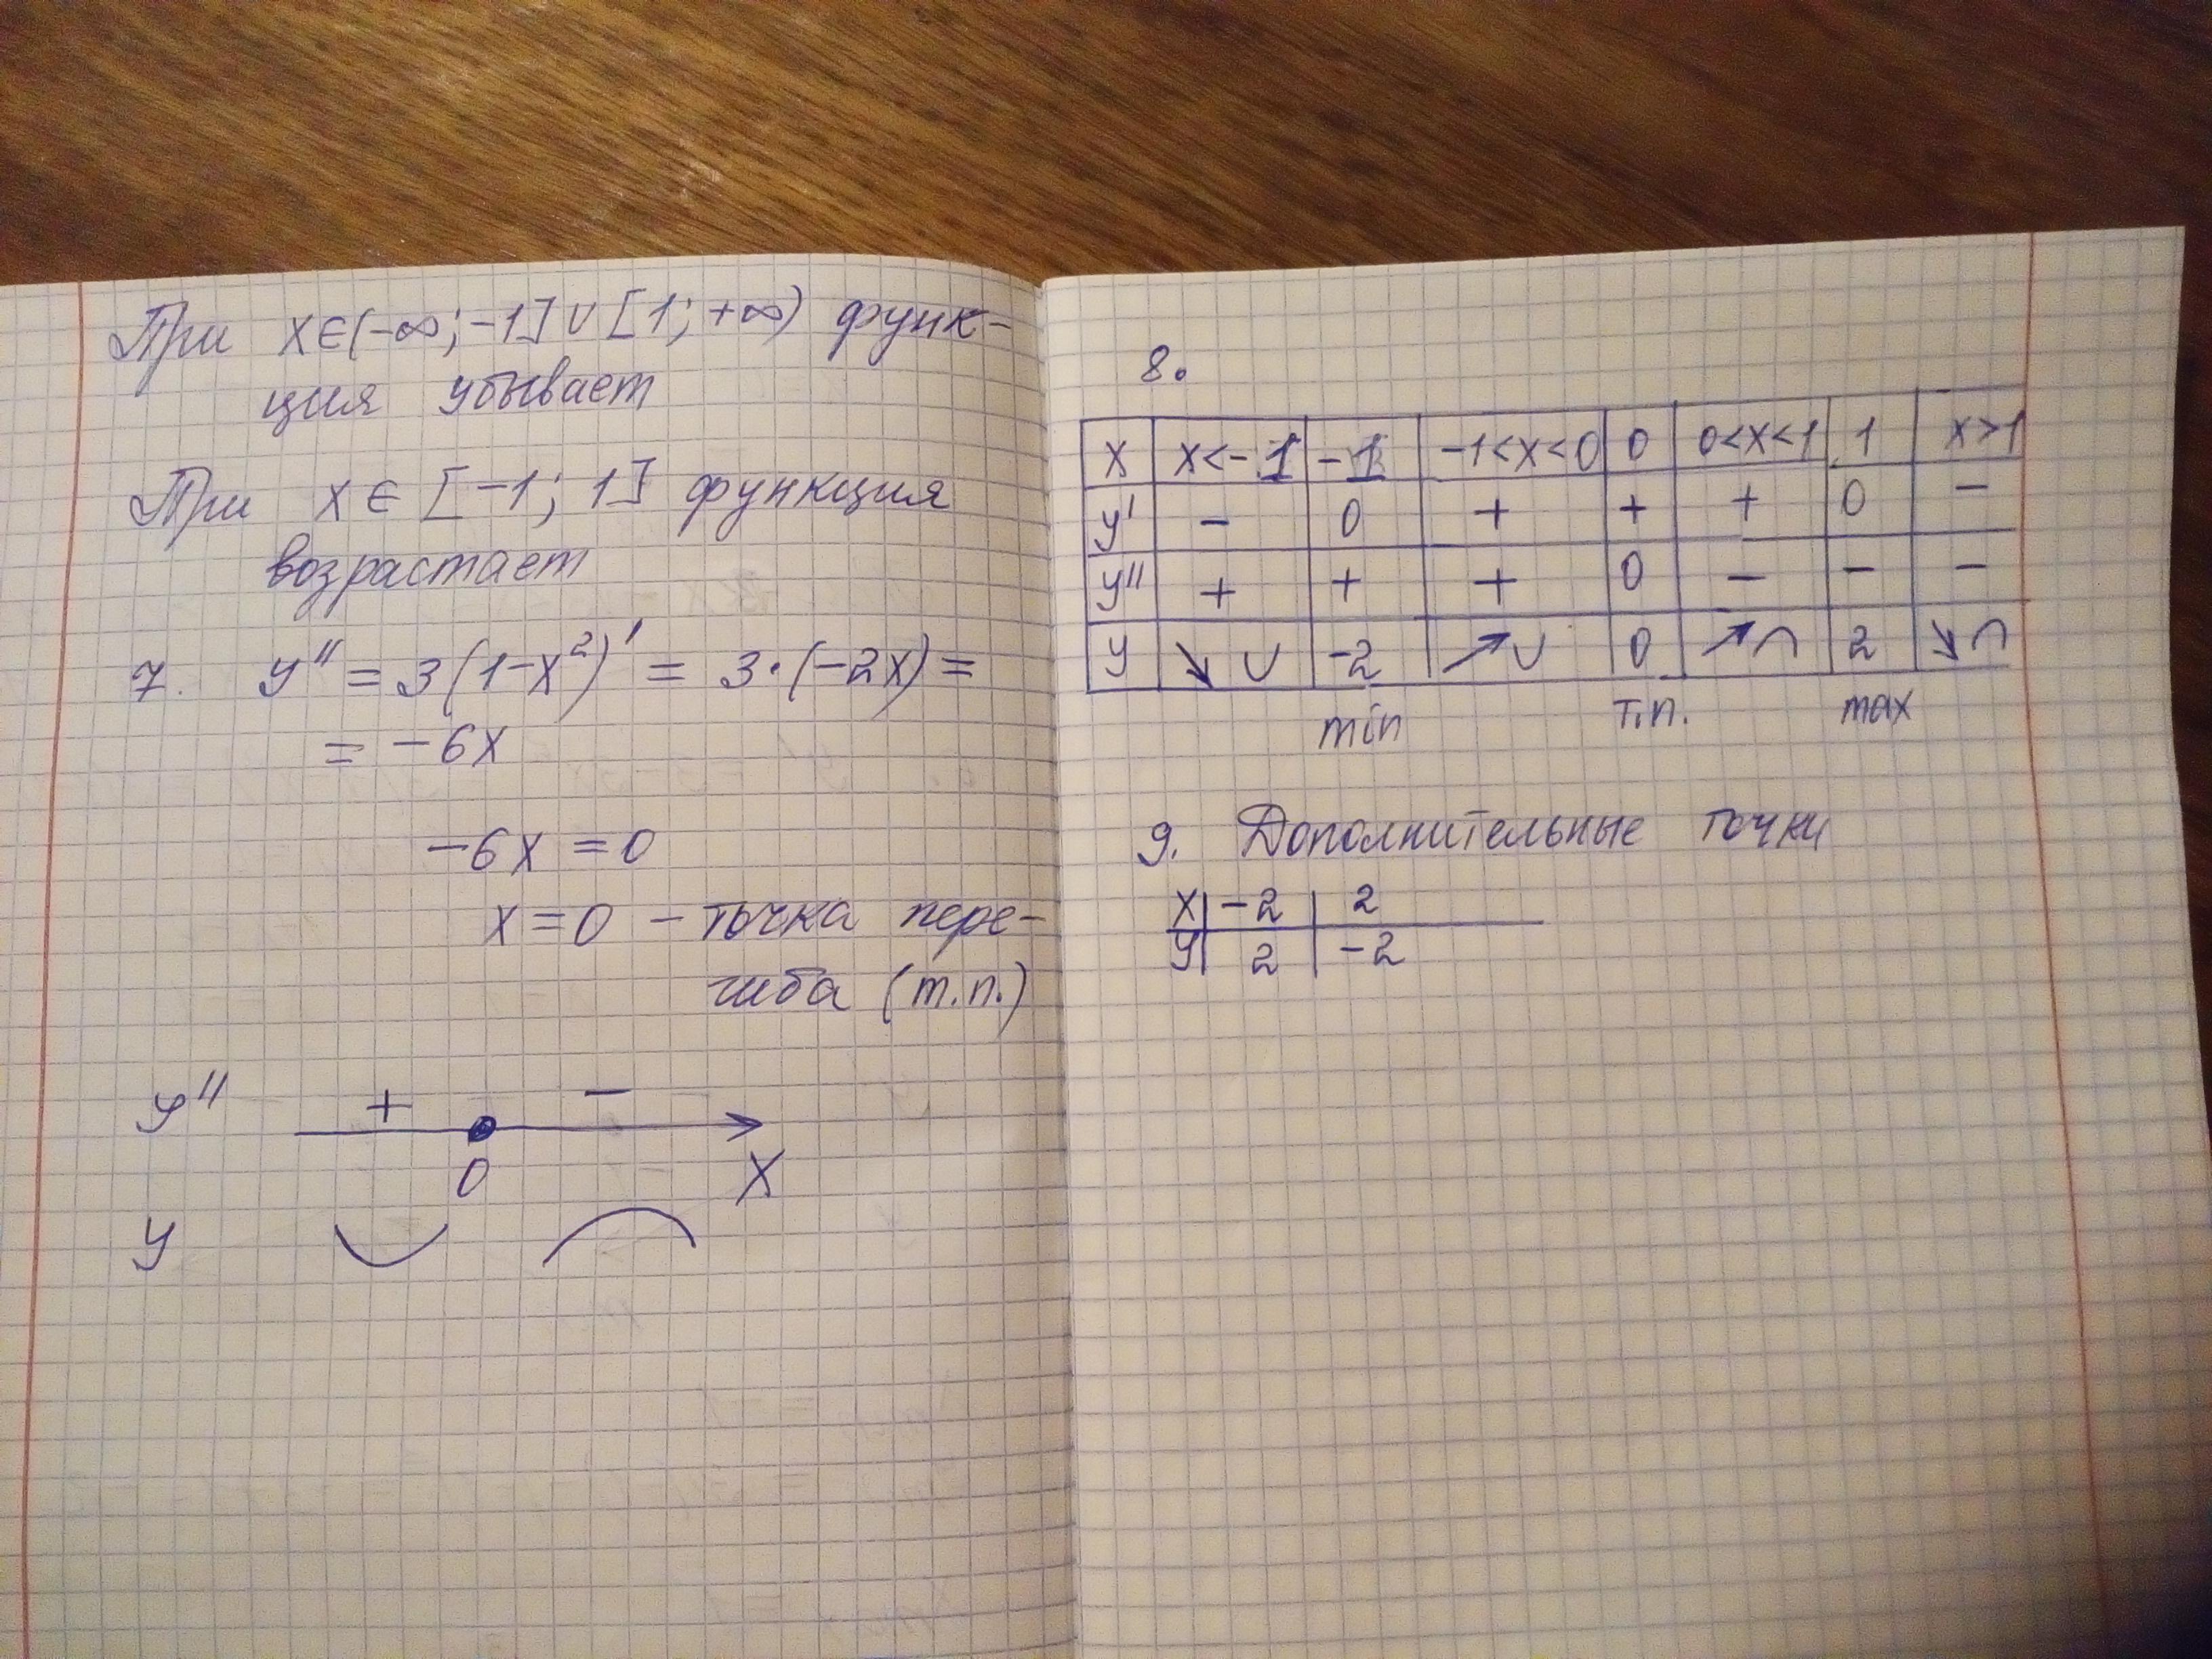 При x∈(-∞;-1]∪[1;+∞) функ-
ция убывает
При x∈[-1;1] функция
возрастает
7. y'' = 3(1-x²)' = 3·(-2x) =
= -6x
-6x = 0
x = 0 - точка пере-
гиба (т.п.)
y'' + -
0 x
y
8.
x x<-1 -1 -1<x<0 0 0<x<1 1 x>1
y' - 0 + + + 0 -
y'' + + + 0 - - -
y ↘ ∪ -2 ↗ ∪ 0 ↗ ∩ 2 ↘ ∩
min т.п. max
9. Дополнительные точки
x -2 2
y 2 -2